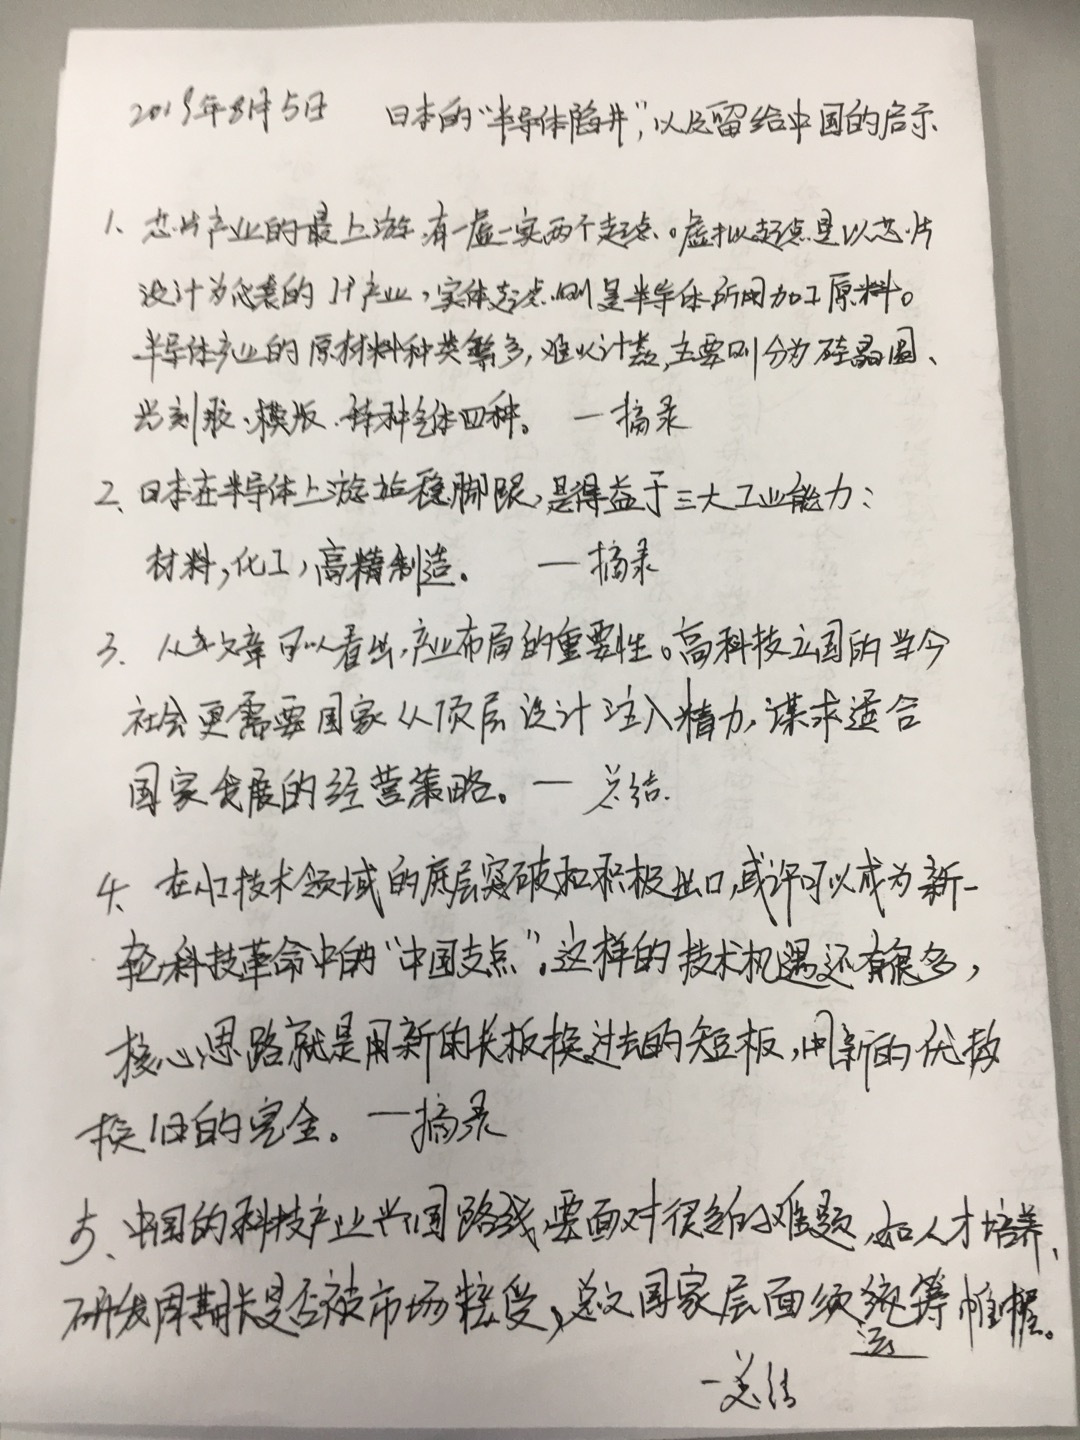 2019年8月5日 日本的“半导体陷井”，以及留给中国的启示
1、芯片产业的最上游，有一虚一实两个起点。虚拟起点是以芯片
设计为代表的IP产业，实体起点则是半导体所用加工原料。
半导体产业的原材料种类繁多，难以计数，主要则分为硅晶圆、
光刻胶、模版、特种气体四种。 —摘录
2、日本在半导体上游站稳脚跟，是得益于三大工业能力：
材料，化工，高精制造。 —摘录
3、从本文章可以看出，产业布局的重要性。高科技立国的当今
社会更需要国家从顶层设计注入精力，谋求适合
国家发展的经营策略。— 总结
4、在AI技术领域的底层突破和积极出口，或许可以成为新一
轮科技革命中的“中国支点”。这样的技术机遇还有很多，
核心思路就是用新的长板换过去的短板，用新的优势
换旧的完全。—摘录
5、中国的科技产业兴国路线，要面对很多的难题，如人才培养、
研发周期长是否被市场接受，总之国家层面须统筹帷幄。
运
—总结